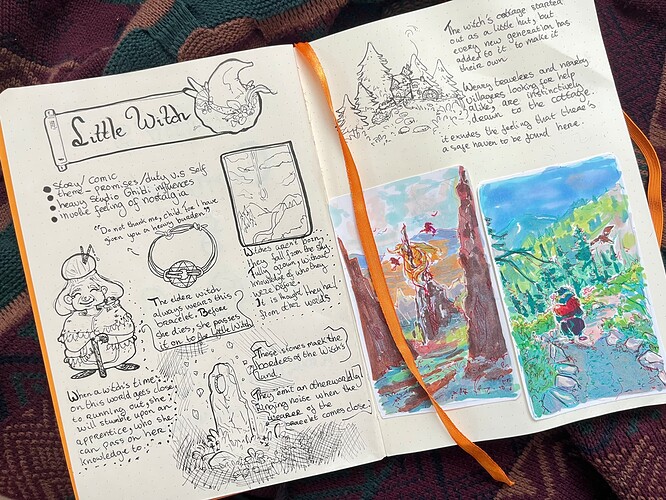 Little Witch
story/comic
theme - promises/duty v.s self
heavy Studio Ghibli influences
invoke feeling of nostalgia
"Do not thank me, child, for I have
given you a heavy burden"
Witches aren't born,
they fall from the sky
fully grown, without
knowledge of who they
were before
It is thought they hail
from other worlds
The elder witch
always wears this
bracelet. Before
she dies, she passes
it on to the Little Witch
These stones mark the
borders of the witch's
land.
They emit an otherworldly
ringing noise when the
wearer of the
bracelet comes close.
When a witch's time
on this world gets close
to running out, she
will stumble upon an
apprentice, who she
can pass on her
knowledge to
The witch's cottage started
out as a little hut, but
every new generation has
added to it to make it
their own
Weary travelers and nearby
villagers looking for help
alike are instinctively
drawn to the cottage.
it exudes the feeling that there's
a safe haven to be found here.